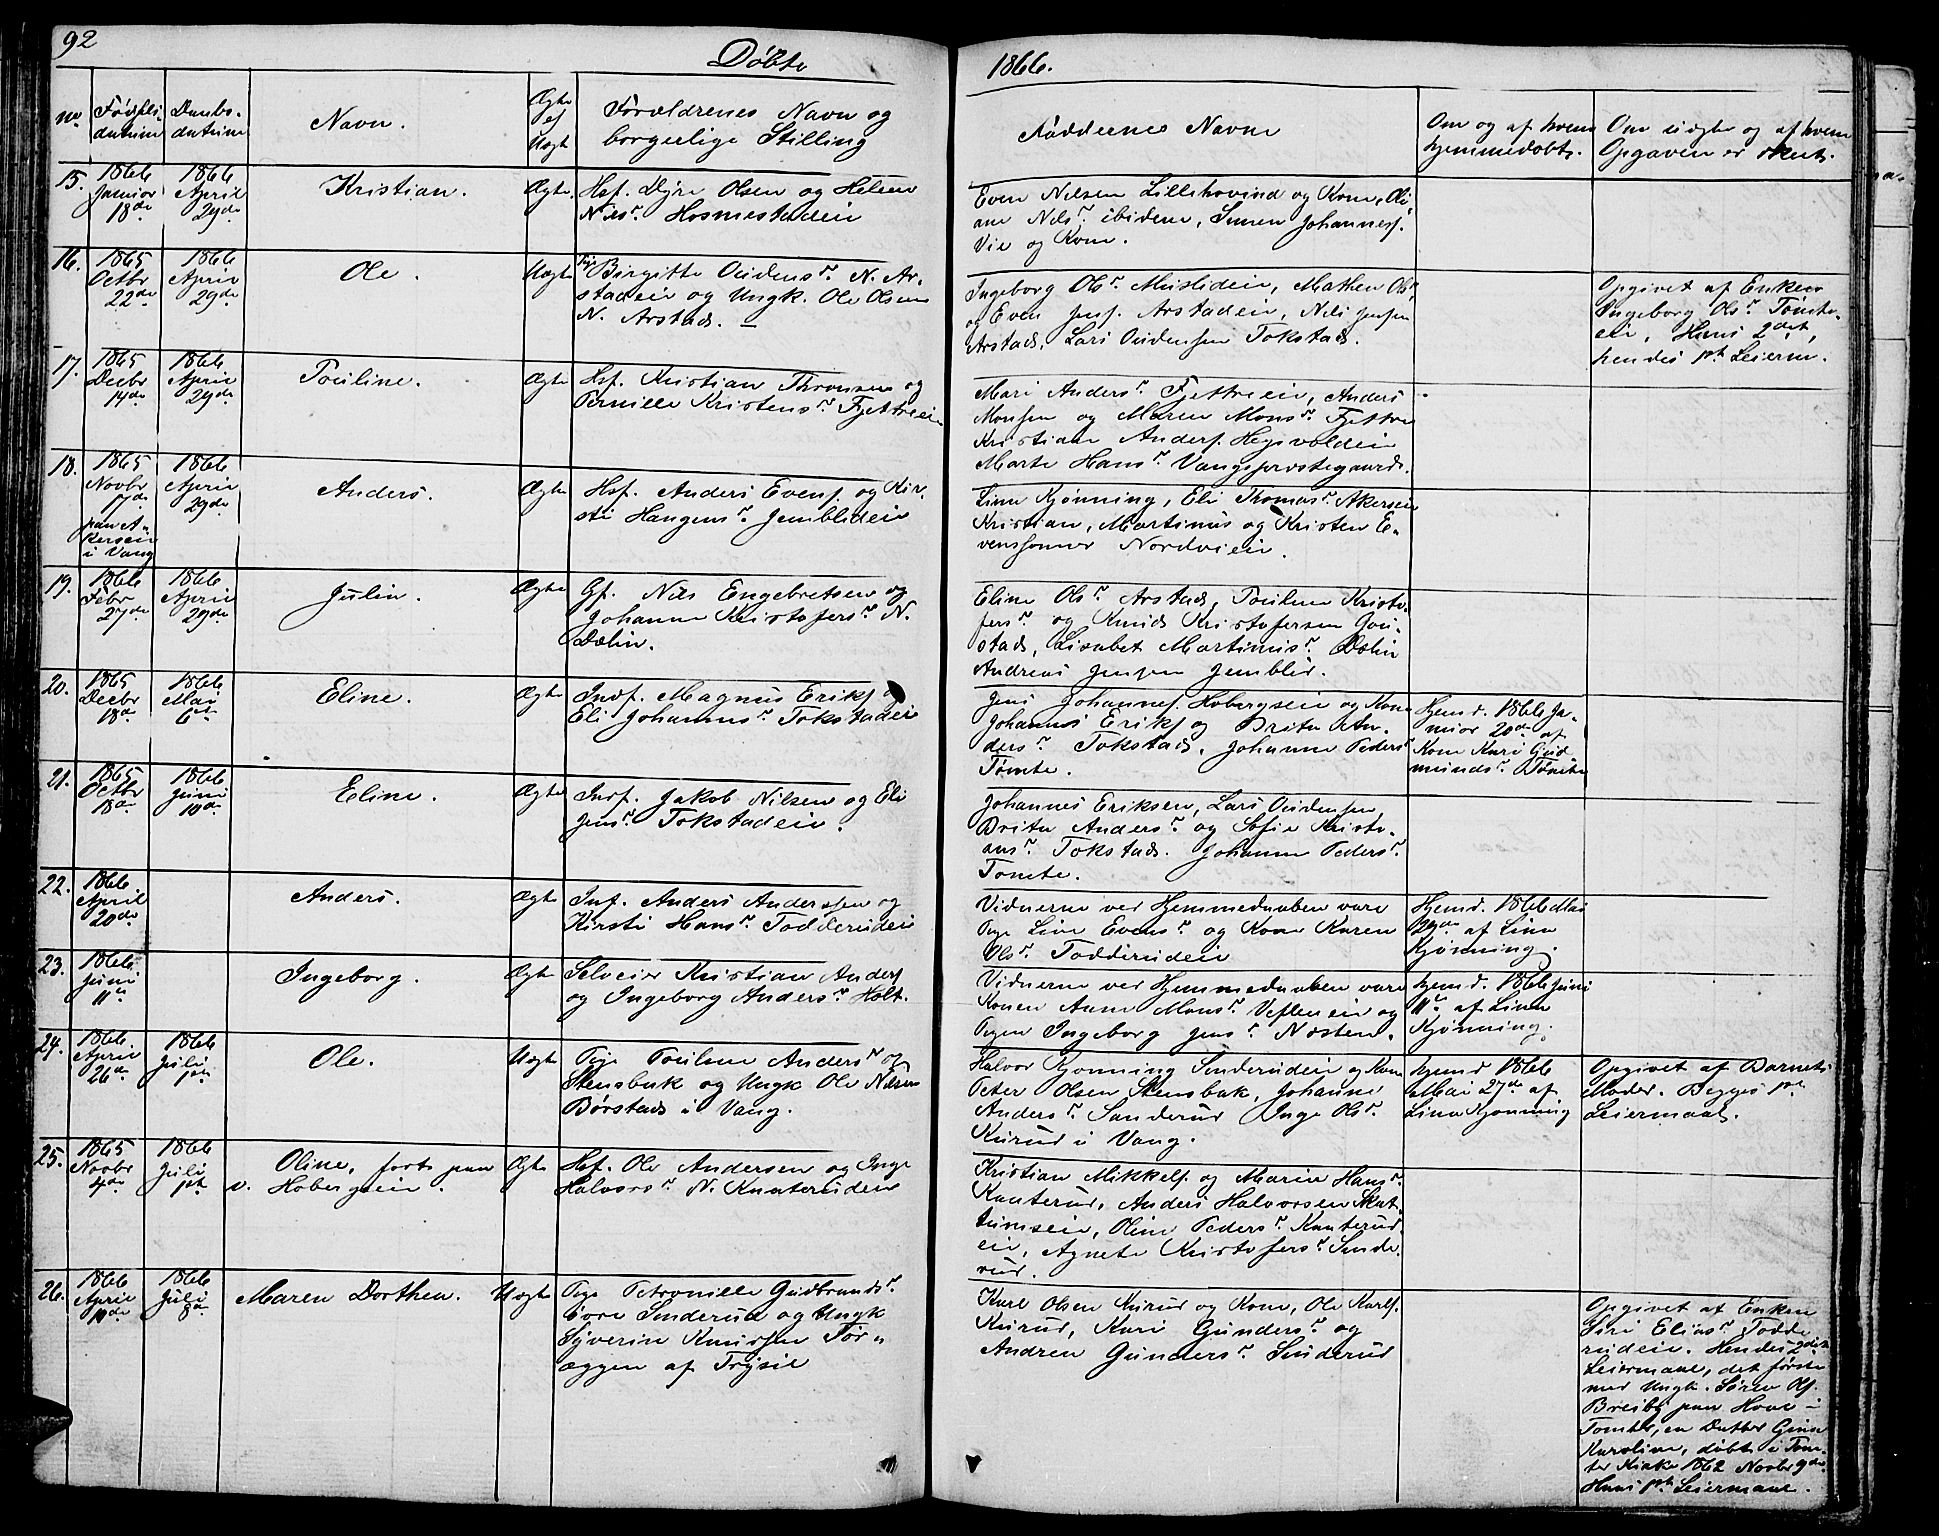 92
Døbte
1866.
No
Fødsels-
datum
Daabs-
datum
Navn.
Ægte
ej
Uægt
Forældrenes Navn og
borgerlige Stilling
Faddernes Navne
Om og af hvem
hjemmedøbt.
Om uægte og af hvem
Opgaven er skeet.
15.
1866
Januar
18de
1866
April
29de
Kristian.
Ægte
Hsf. Olsen og Helene
Nilsr. Hosmestadeie
Even Nilsen Lillehovind og Kone, Oli-
ane Nilsr. ibidem, Simen Johannesf.
Vie og Kone.
16.
1865
Octbr
22de
1866
April
29de
Ole.
Uægte
Pige Birgitte Oudensr. N. Ar-
stadeie og Ungk. Ole Olsen
N. Arstad. —
Ingeborg Olsr. Muslideie, Mathea Olsr.
og Even Jensf. Arstadeie, Nils Jensen
Arstad, Lars Oudensen Tokstad.
Opgivet af Enken
Ingeborg Olsr. Tomte-
eie, Hans 2det,
hendes 1ste Leierm.
17.
1865
Decbr
14de
1866
April
29de
Pouline.
Ægte
Hsf. Kristian Thronsen og
Pernille Kristensr. Fjetreeie
Mari Andersr. Fjetreeie, Anders
Monsen og Maren Monsr. Fjetre
Kristian Andersf. Hegsvoldeie
Marte Hansr. Vangsprestegaard.
18.
1865
Novbr
17de
paa A-
kerseie
i Vang
1866
April
29de
Anders.
Ægte
Hsf. Anders Evensf. og Kir-
sti Haagensr. Jemblideie
Lina Kjønning, Eli Thomasr. Akerseie
Kristian, Martinus og Kristen E-
venssønner Nordvieie.
19.
1866
Febr
27de
1866
April
29de
Julia.
Ægte
Gf. Nils Engebretsen og
Johanne Kristofersr. N.
Dælin.
Eline Olsr. Arstad, Pouline Kristo-
fersr. og Knud Kristofersen Gou-
stad, Lisabet Martinusr. Dælin
Andreas Jensen Jemblid.
20.
1865
Decbr
18de
1866
Mai
6te
Eline.
Ægte
Indf. Magnus Eriksf. og
Eli Johannesr. Tokstadeie
Jens Johannesf. Hobergseie og Kone
Johannes Eriksf. og Brita An-
dersr. Tokstad, Johanne Pedersr.
Tomte.
Hjemd. 1866 Ja-
nuar 20de af
Kone Kari Gud-
mundsr. Tomte
21.
1865
Octbr
18de
1866
Juni
10de
Eline.
Ægte
Indf. Jakob Nilsen og Eli
Jensr. Tokstadeie.
Johannes Eriksen, Lars Oudensen,
Brita Andersr. og Sofie Kristi-
ansr. Tokstad. Johanne Pedersr.
Tomte.
22.
1866
April
20de
Anders.
Ægte
Inf. Anders Andersen og
Kirsti Hansr. Todderudeie
Vidnerne ved Hjemmedaaben vare
Pige Live Evensr. og Kone Karen
Olsr. Todderudeie
Hjemd. 1866 Mai
29de af Lina
Kjønning.
23.
1866
Juni
11te
Ingeborg.
Ægte
Selveier Kristian Andersf.
og Ingeborg Andersr. Holt.
Vidnerne ved Hjemmedaaben vare
Konen Anne Monsr. Vesleneie og
Pigen Ingeborg Jensr. Næsten.
Hjemd. 1866 Juni
11te af Lina
Kjønning.
24.
1866
April
26de
1866
Juli
1ste
Ole.
Uægte
Pige Pouline Andersr. og
Stensbak og Ungk Ole Nilsen
Børstad i Vang.
Halvor Kjønning Sinderudeie og Kone
Peter Olsen Stensbak, Johanne
Andersr. Sanderud Inge Olsr.
Kurud i Vang.
Hjemd 1866
Mai 27de af
Lina Kjønning
Opgivet af Barnets
Moder. Begges 1ste
Leiermaal.
25.
1865
Novbr
4de
1866
Juli
1ste
Oline, født paa
v. Hobergseie.
Ægte
Hsf. Ole Andersen og Inge
Halvorsr. N. Knaterudeie
Kristian Mikkelsf. og Marie Hansr.
Knaterud, Anders Halvorsen Skat-
tumseie, Oline Pedersr. Knaterud-
eie, Agnete Kristofersr. Sinde-
rud.
26.
1866
April
10de
1866
Juli
8de
Maren Dorthea.
Uægte
Pige Petronille Gudbrandsr.
øvre Sinderud og Ungk
Syverin Knudsen Før-
æggen af Trysil
Karl Olsen Kurud og Kone, Ole Karlsf.
Kurud, Kari Gundersr. og
Andrea Gundersr. Sinderud
Opgivet af Enken
Siri Eliasr. Todde-
rudeie. Hendes 2det
Leiermaal, det første
med Ungk. Søren Olsf.
Breiby paa Hove i
Tomter, en Datter Gina
Karoline, døbt i Tom-
ter Kirke 1862 Novbr 9de.
Hans 1ste Leiermaal.